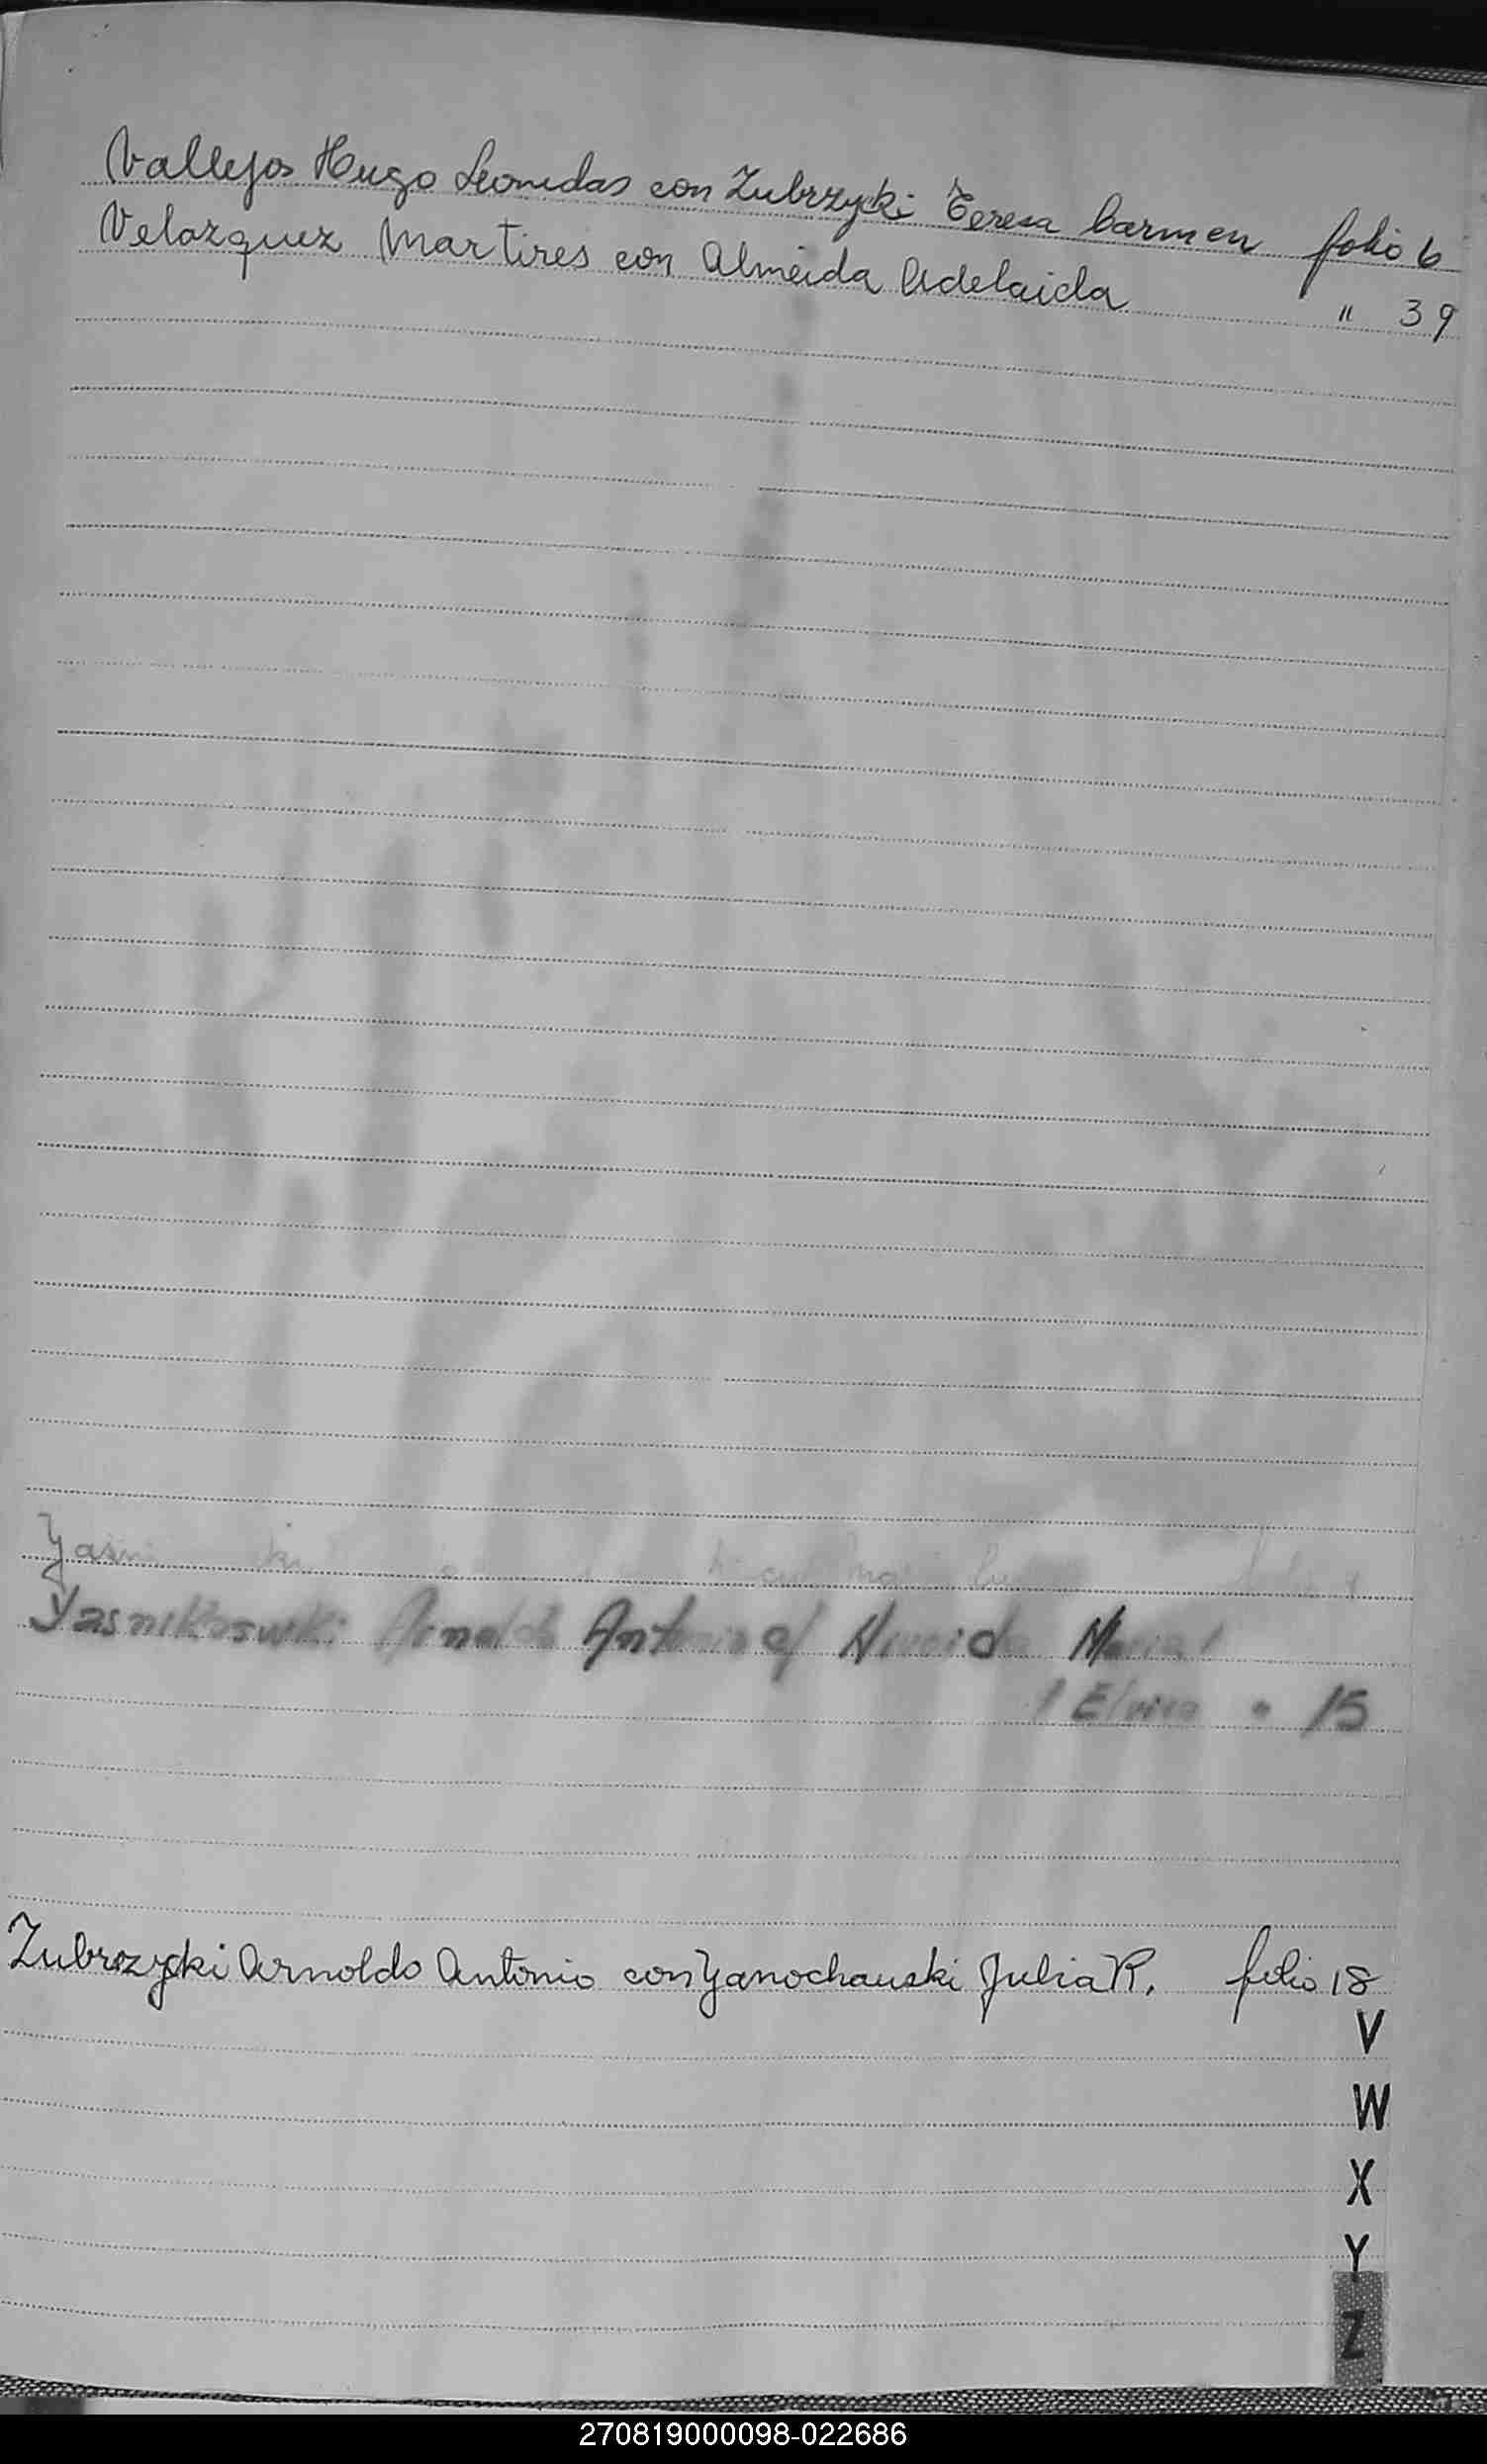 Vallejos Hugo Leonidas con Zubrzycki Teresa Carmen folio 6
Velazquez Martires con Almeida Adelaida " 39
Yasnikoswki Arnoldo Antonio c/ Almeida Maria
Elvira " 15
Zubrzycki Arnoldo Antonio con Yanochauski Julia R. folio 18
V
W
X
Y
Z
270819000098-022686